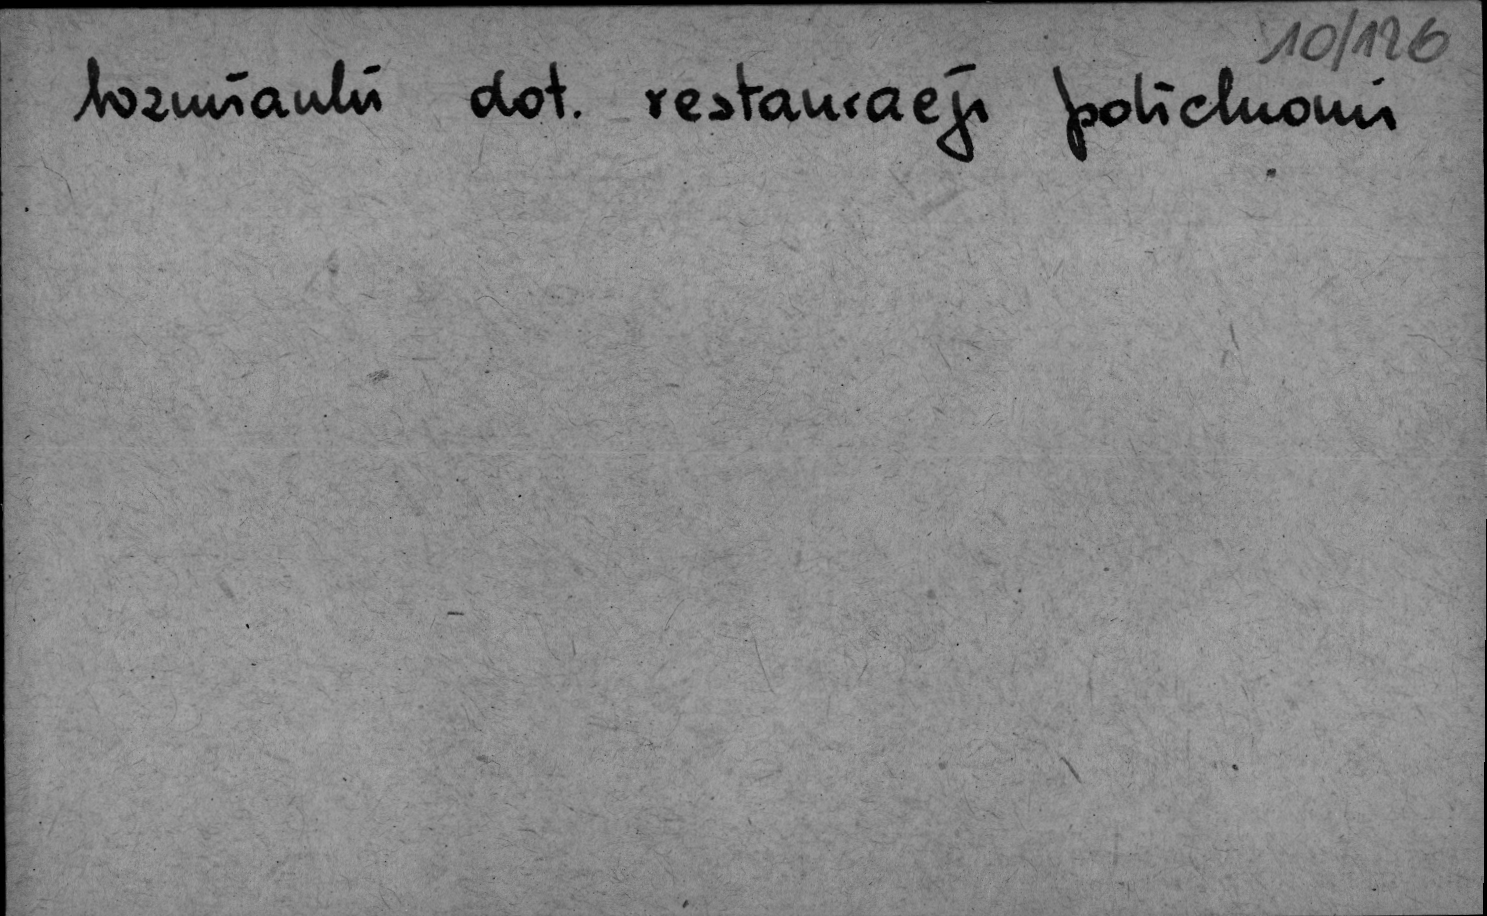 10/126
Wzmianki dot. restauracji polichromii